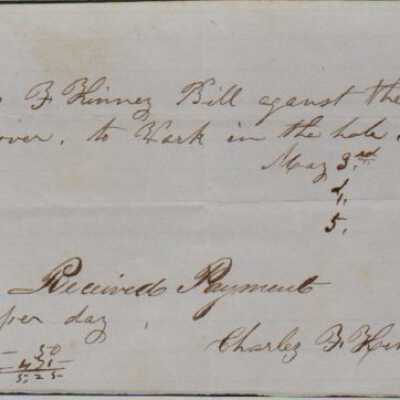 F Kinney Bill aganst the
over, to Work in the hole
May 3rd
4,
5,
Received Payment
per day,
Charley F
50
5 25